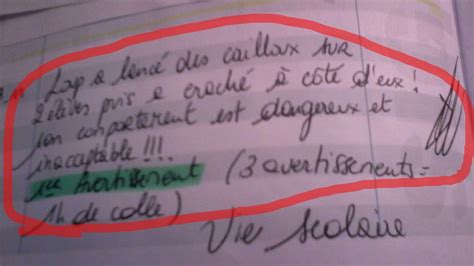 a lancé des cailloux sur
2 élèves puis a craché à côté d'eux !
son comportement est dangereux et
inacceptable !!!
1er Avertissement (3 avertissements =
1h de colle)
Vie scolaire